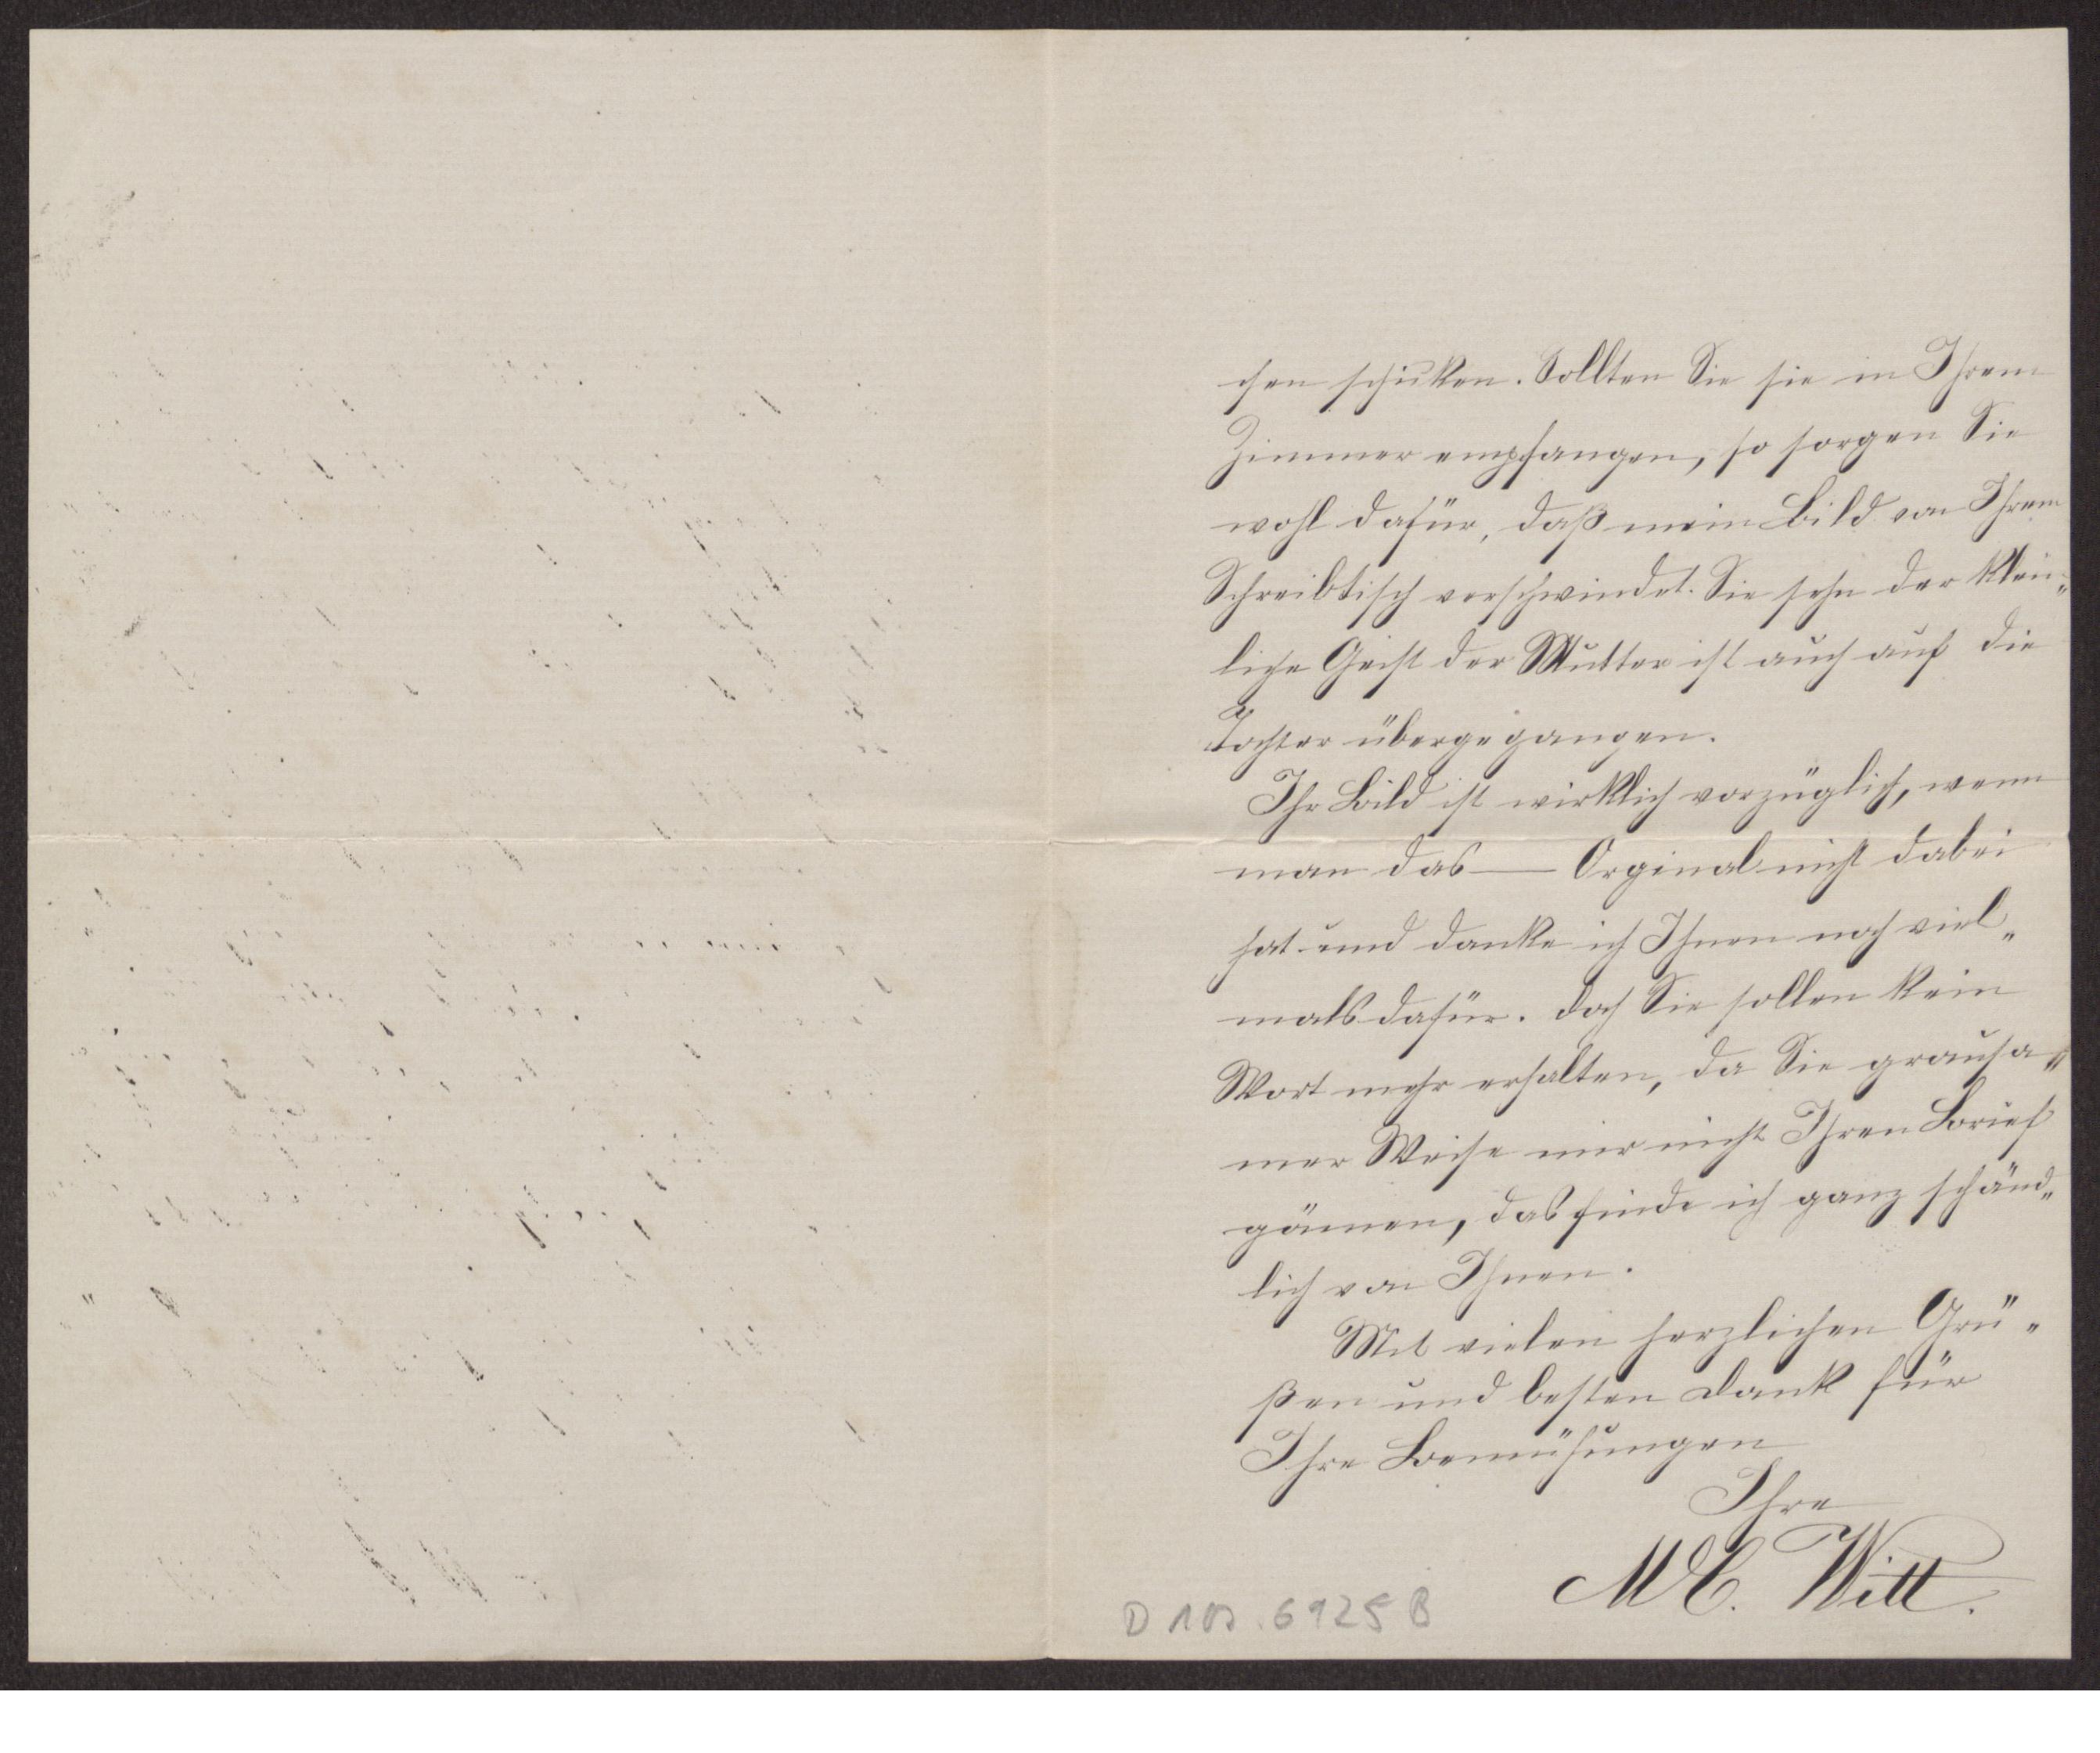 chen schicken. Sollten Sie sie in Ihrem
Zimmer empfangen, so sorgen Sie
wohl dafür, daß mein Bild von Ihrem
Schreibtisch verschwindet. Sie sehn der klein„
liche Geist der Mutter ist auch auf die
Tochter übergegangen.
Ihr Bild ist wirklich vorzüglich, wenn
man das — Orginal nicht dabei
hat und danke ich Ihnen noch viel„
mals dafür. Doch Sie sollen kein
Wort mehr erhalten, da Sie grausa„
mer Weise mir nicht Ihren Brief
gönnen, das finde ich ganz schänd„
lich von Ihnen.
Mit vielen herzlichen Grü„
ßen und besten Dank für
Ihre Bemühungen
Ihre
M C. Witt.
D 6925 B